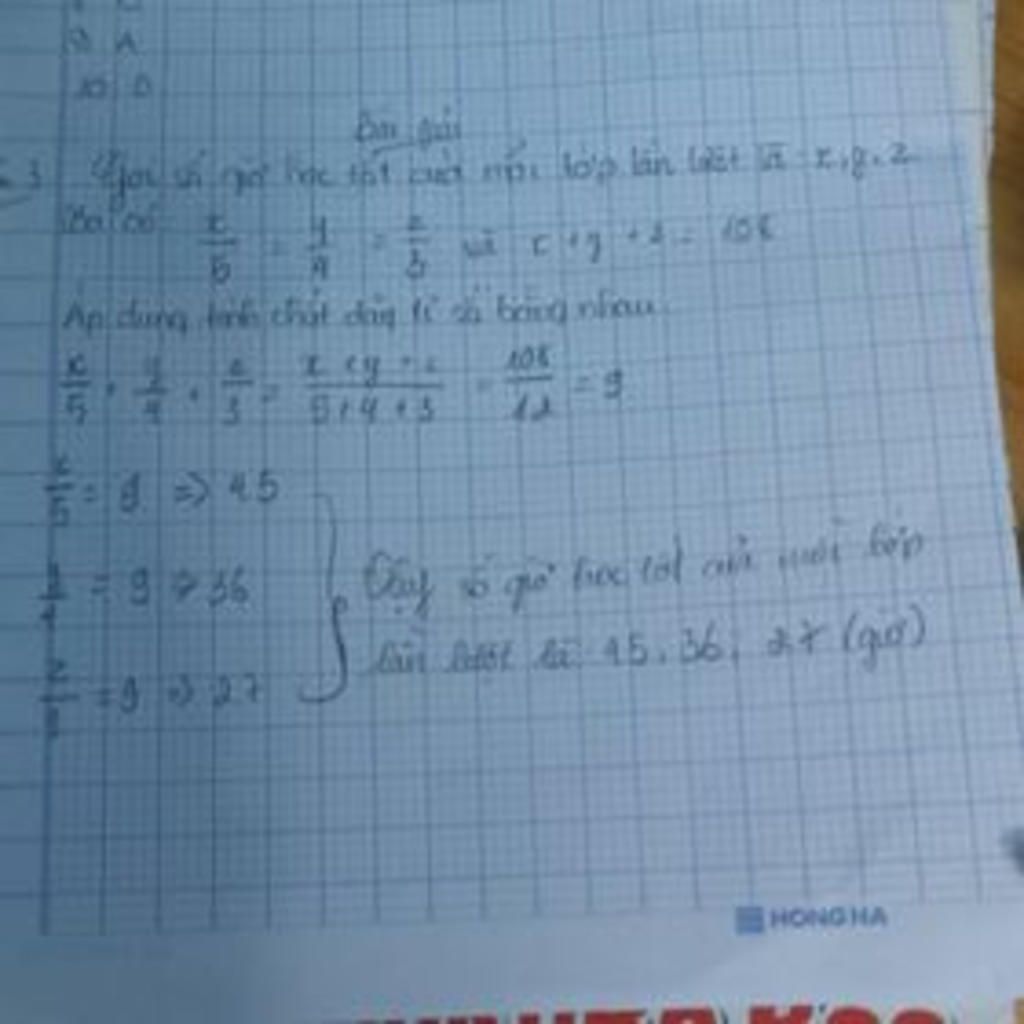 9 A
10 D
Bài giải
3 Gọi số giờ học tốt của mỗi lớp lần lượt là x, y, z
Ta có x/5 = y/4 = z/3 và x + y + z = 108
Áp dụng tính chất dãy tỉ số bằng nhau
x/5 = y/4 = z/3 = x + y + z / 5 + 4 + 3 = 108/12 = 9
x/5 = 9 => 45
y/4 = 9 => 36
z/3 = 9 => 27
Vậy số giờ học tốt của mỗi lớp
lần lượt là 45, 36, 27 (giờ)
HONG HA